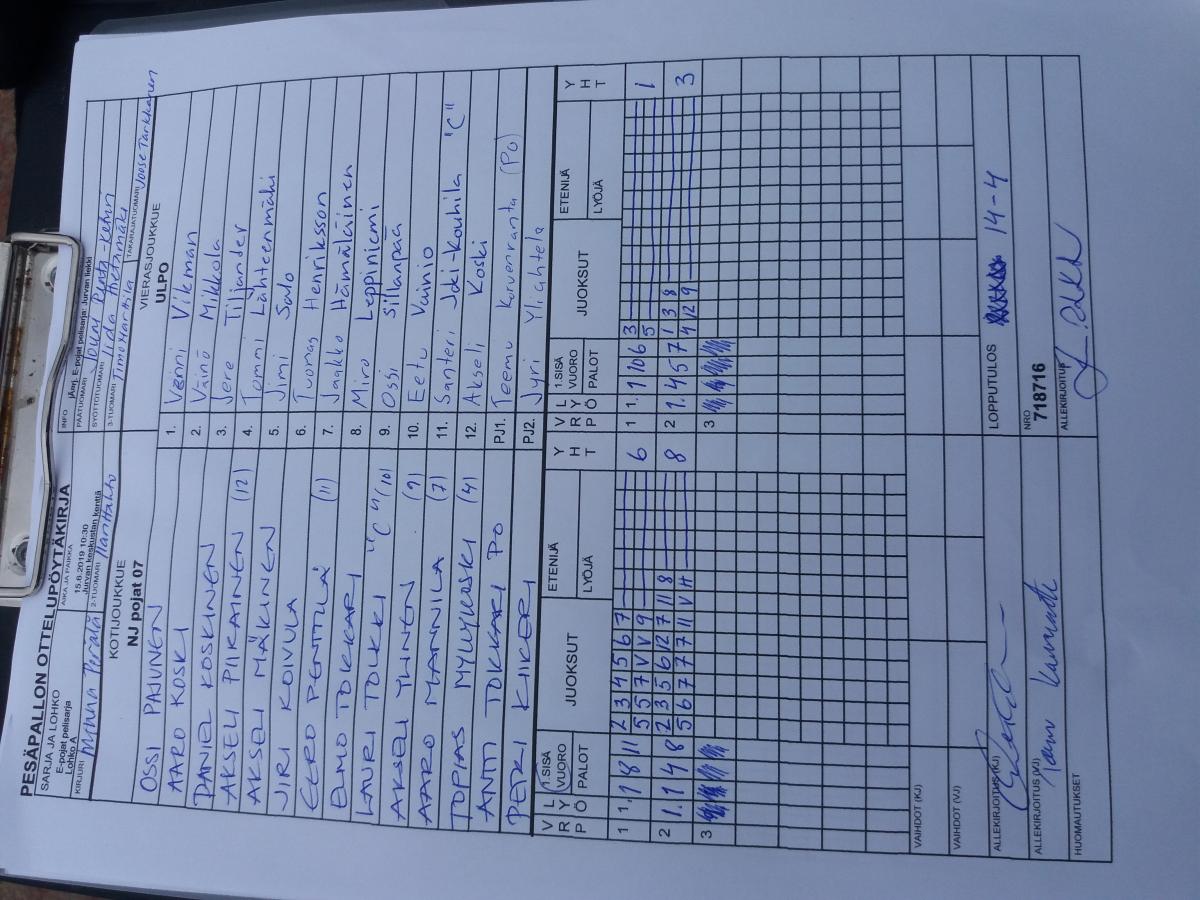 PESÄPALLON OTTELUPÖYTÄKIRJA
SARJA JA LOHKO
E-pojat pelisarja
Lohko A
AIKA JA PAIKKA
15.6.2019 10:30
Jurvan keskustan kenttä
INFO jÄarj. E-pojat pelisarja: Jurvan liekki
PÄÄTUOMARI
SYÖTTÖTUOMARI
KIRJURI Minna Perälä
2-TUOMARI
3-TUOMARI Timo Marttila
TAKARAJATUOMARI Joose Tarkkanen
KOTIJOUKKUE
NJ pojat 07
VIERASJOUKKUE
ULPO
OSSI PAJUNEN 1. Vänni Vikman
AARO KOSKI 2. Väinö Mikkola
DANIEL KOSKINEN 3. Jere Tiljander
AKSELI PIIKAINEN (12) 4. Tommi Lähteenmäki
AKSELI MÄKINEN 5. Jimi Salo
JIRI KOIVULA 6. Tuomas Henriksson
EERO PENTTILÄ (11) 7. Jaakko Hämäläinen
ELMO TOKKARI 8. Miro Leppiniemi
LAURI TOLKKI "C" (10) 9. Ossi Sillanpää
AKSELI YLINEN (9) 10. Eetu Vainio
AARO MANNILA (7) 11. Santeri Joki-Kouhila "C"
TOPIAS MYLLYKOSKI (4) 12. Akseli Koski
ANTTI TOKKARI PO PJ1. Teemu Korvenranta (PO)
PETRI KIIKERI PJ2. Jyri Yliahtela
V R L Y P Ö 1.SISÄ VUORO PALOT JUOKSUT ETENIJÄ LYÖJÄ Y H T
V R L Y P Ö 1.SISÄ VUORO PALOT JUOKSUT ETENIJÄ LYÖJÄ Y H T
1 1. 1 8 11 2 3 4 5 6 7 6
5 5 7 V V 9
1 1. 1 10 6 3 1
5
2 1. 1 4 8 2 3 5 6 12 7 11 8 8
5 6 7 7 7 11 V H
2 1. 4 5 7 1 3 8 3
4 12 9
3
3
VAIHDOT (KJ)
VAIHDOT (VJ)
LOPPUTULOS 14-4
ALLEKIRJOITUS (KJ)
ALLEKIRJOITUS (VJ)
NRO
718716
ALLEKIRJOITUS
HUOMAUTUKSET